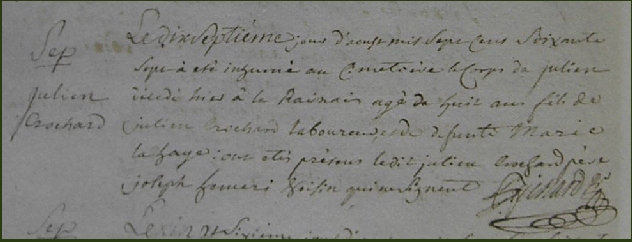 Sep
julien
Crochard
Le dix septiéme jour d'aoust mil sept cens soixante
sept à eté inhumé au Cimetoire le corps de julien
décédé hier à la Rainais agé de huit ans fils de
julien Crochard laboureur, et de defunte Marie
la haye : ont étés présens ledit julien Crochard pere
joseph voisin qui ne signent
Sep
Le